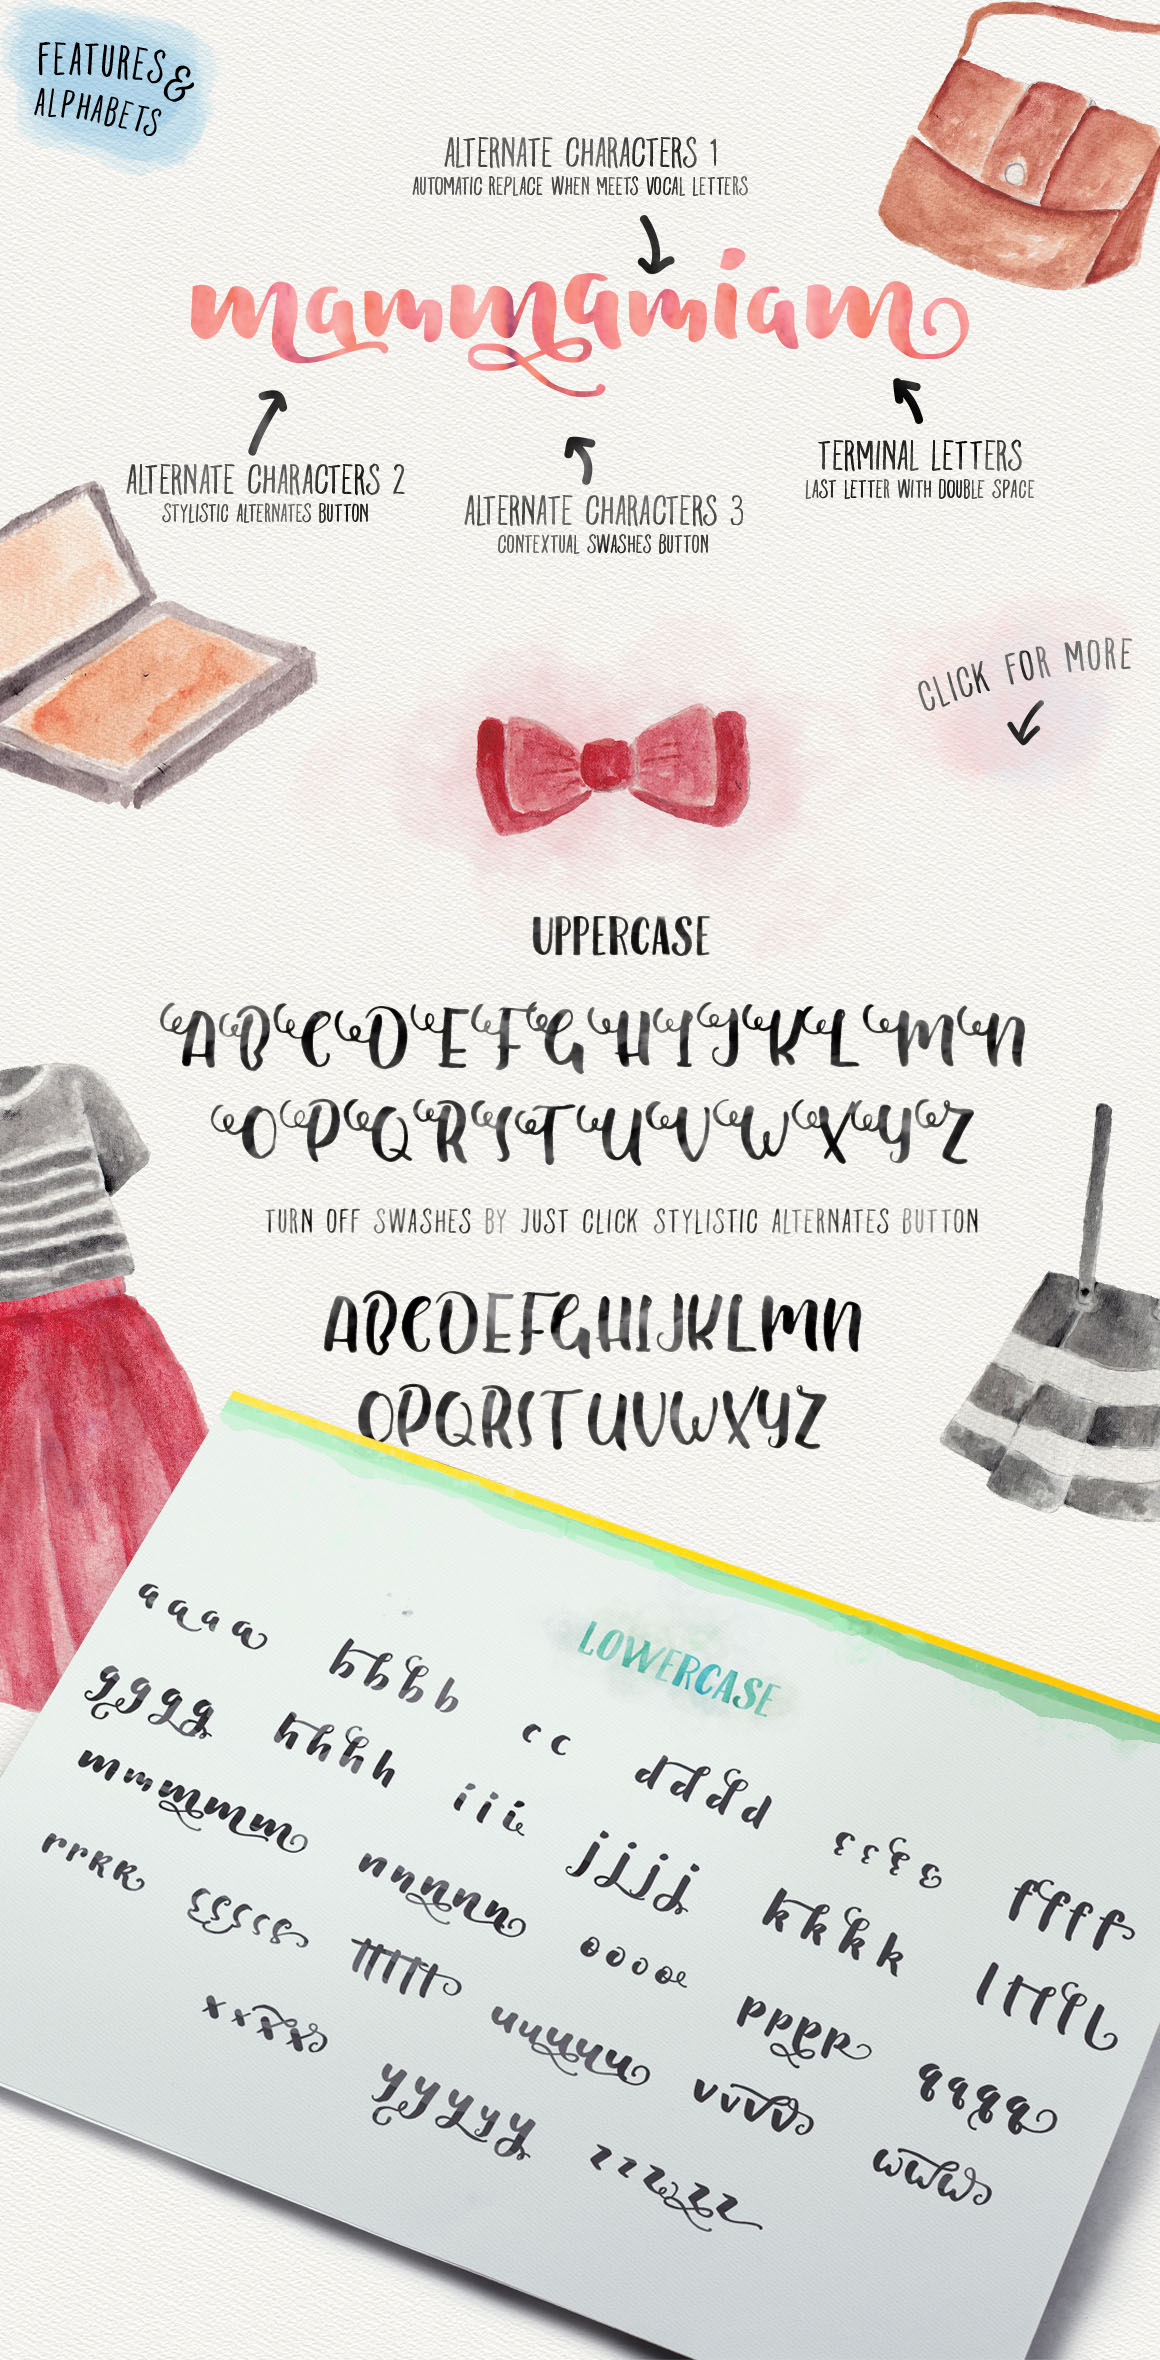 FEATURES &
ALPHABETS
ALTERNATE CHARACTERS 1
AUTOMATIC REPLACE WHEN MEETS VOCAL LETTERS
mammamiam
ALTERNATE CHARACTERS 2
STYLISTIC ALTERNATES BUTTON
ALTERNATE CHARACTERS 3
CONTEXTUAL SWASHES BUTTON
TERMINAL LETTERS
LAST LETTER WITH DOUBLE SPACE
CLICK FOR MORE
UPPERCASE
ABCDEFGHIJKLMN
OPQRSTUVWXYZ
TURN OFF SWASHES BY JUST CLICK STYLISTIC ALTERNATES BUTTON
ABCDEFGHIJKLMN
OPQRSTUVWXYZ
LOWERCASE
aaaa bbbb cc dddd eeee ffff
gggg hhhh iii jjjj kkkk llll
mmmmm nnnnn oooo pppp qqqq
rrrr sssss ttttt uuuuu vvvv wwww
xxxx yyyyy zzzzz